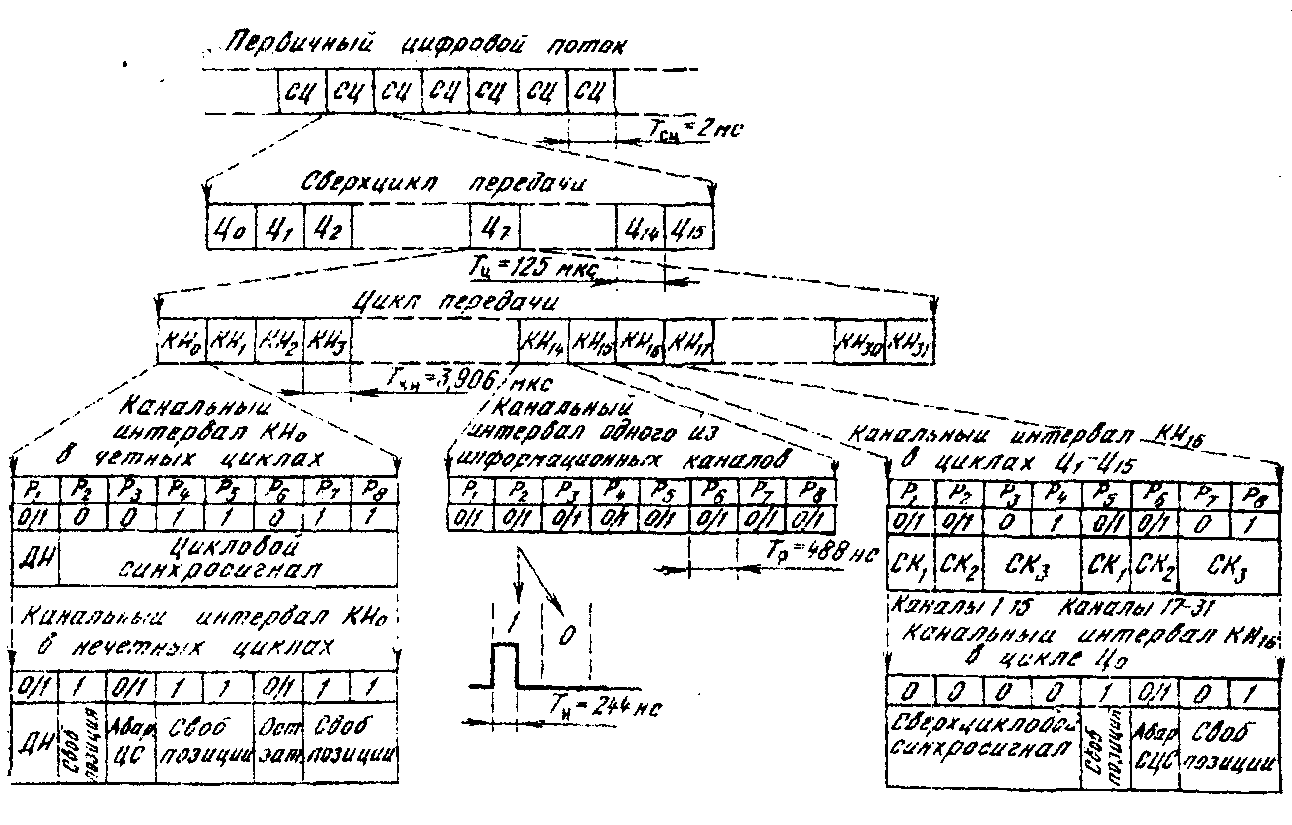 Первичный цифровой поток
СЦ СЦ СЦ СЦ СЦ СЦ СЦ
Tсц = 2 мс
Сверхцикл передачи
Ц0 Ц1 Ц2 Ц7 Ц14 Ц15
Tц = 125 мкс
Цикл передачи
КИ0 КИ1 КИ2 КИ3 КИ14 КИ15 КИ16 КИ17 КИ30 КИ31
Tки = 3,906 мкс
Канальный
интервал КИ0
в четных циклах
P1 P2 P3 P4 P5 P6 P7 P8
0/1 0 0 1 1 0 1 1
ДИ Цикловой
синхросигнал
Канальный интервал КИ0
в нечетных циклах
0/1 1 0/1 1 1 0/1 1 1
ДИ Своб позиция Авар ЦС Своб позиции Ост зат Своб позиции
Канальный
интервал одного из
информационных каналов
P1 P2 P3 P4 P5 P6 P7 P8
0/1 0/1 0/1 0/1 0/1 0/1 0/1 0/1
Tр = 488 нс
1 0
Tи = 244 нс
Канальный интервал КИ16
в циклах Ц1-Ц15
P1 P2 P3 P4 P5 P6 P7 P8
0/1 0/1 0 1 0/1 0/1 0 1
СК1 СК2 СК3 СК1 СК2 СК3
Каналы 1 15 Каналы 17-31
Канальный интервал КИ16
в цикле Ц0
0 0 0 0 1 0/1 0 1
Сверхцикловой синхросигнал Своб позиция Авар СЦС Своб позиции